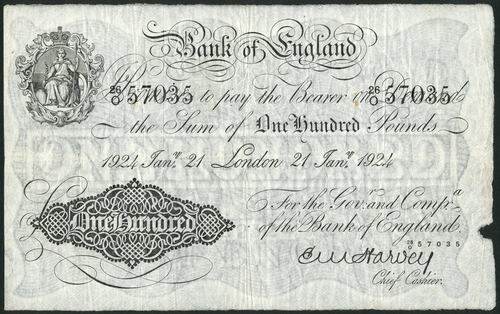 Bank of England
26/O 57035 to pay the Bearer on Demand 26/O 57035
the Sum of One Hundred Pounds
1924 Jany. 21 London 21 Jany. 1924
For the Govr. and Compa.
of the Bank of England.
26/O 57035
One Hundred
E M Harvey
Chief Cashier.